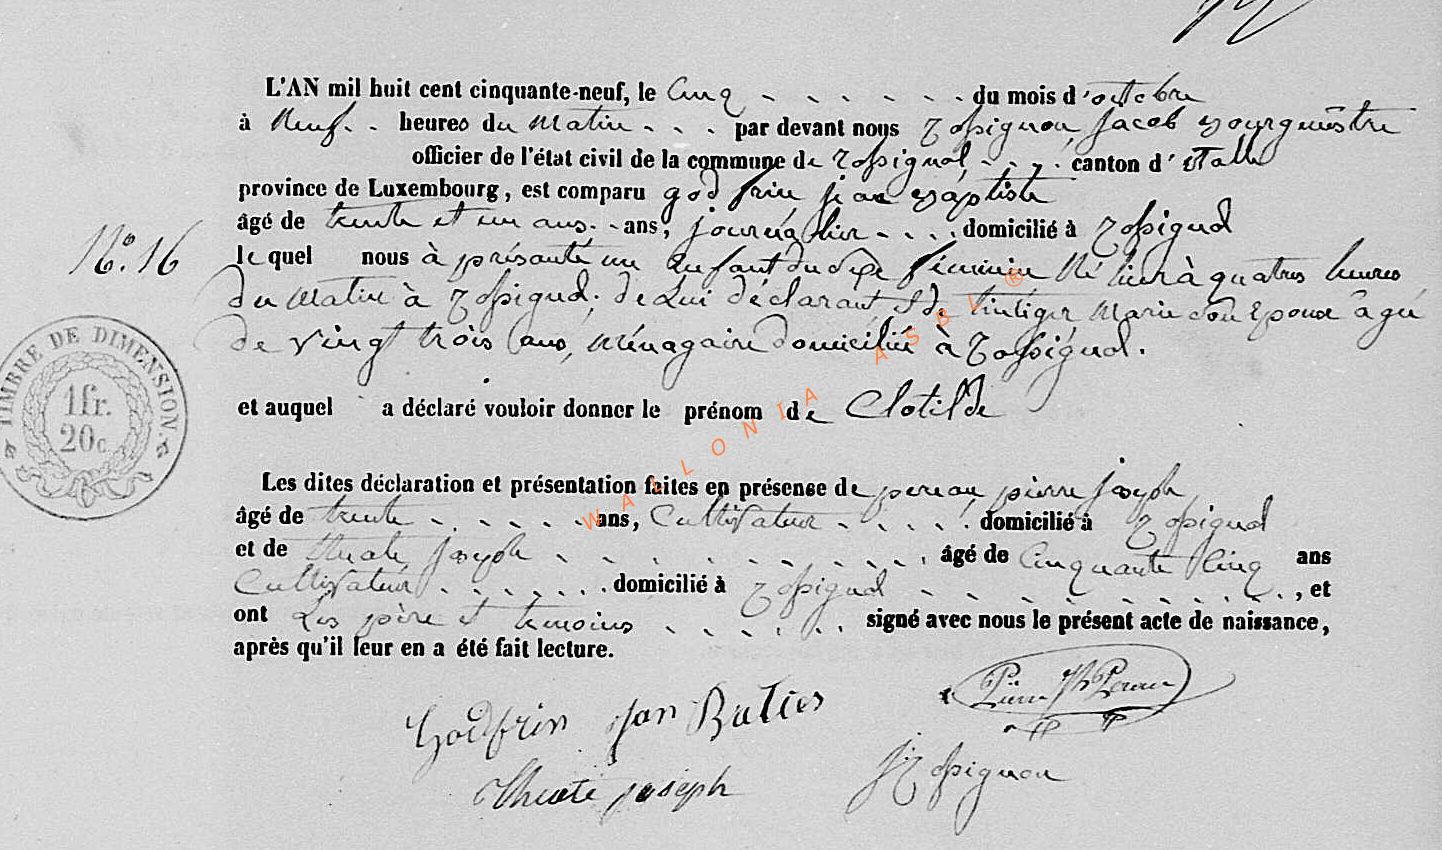 L'AN mil huit cent cinquante-neuf, le Cinq - - - - - - - du mois d'octobre
à Neuf. - heures du Matin - - - par devant nous Rossignon Jacob Bourguêstre
officier de l'état civil de la commune de Rossignol, - - - . canton d'Etalle
province de Luxembourg, est comparu godfrin jean Baptiste
âgé de trente et un ans. - ans, journalier - - - - domicilié à Rossignol
N°. 16
le quel nous à présanté un Enfant du Sexe féminin Né hier à quatres heures
du Matin à Rossignol. de Lui déclarant, et de Marie Son Epouse âgée
de vingt trois ans, Ménagaire domiciliée à Rossignol.
TIMBRE DE DIMENSION
1 fr.
20 c.
et auquel a déclaré vouloir donner le prénom de Clotilde
Les dites déclaration et présentation faites en présense de pierre Joseph
âgé de trente - - - - - - ans, Cultivateur - - - - - domicilié à Rossignol
et de Joseph - - - - - - - - - - - , âgé de Cinquante Cinq ans
Cultivateur - - - - - - domicilié à Rossignol - - - - - - - - - , et
ont Les père et temoins - - - - - - signé avec nous le présent acte de naissance,
après qu'il leur en a été fait lecture.
Godfrin Jan Baties
joseph
J Rossignon
WALLONIA ASBL ®